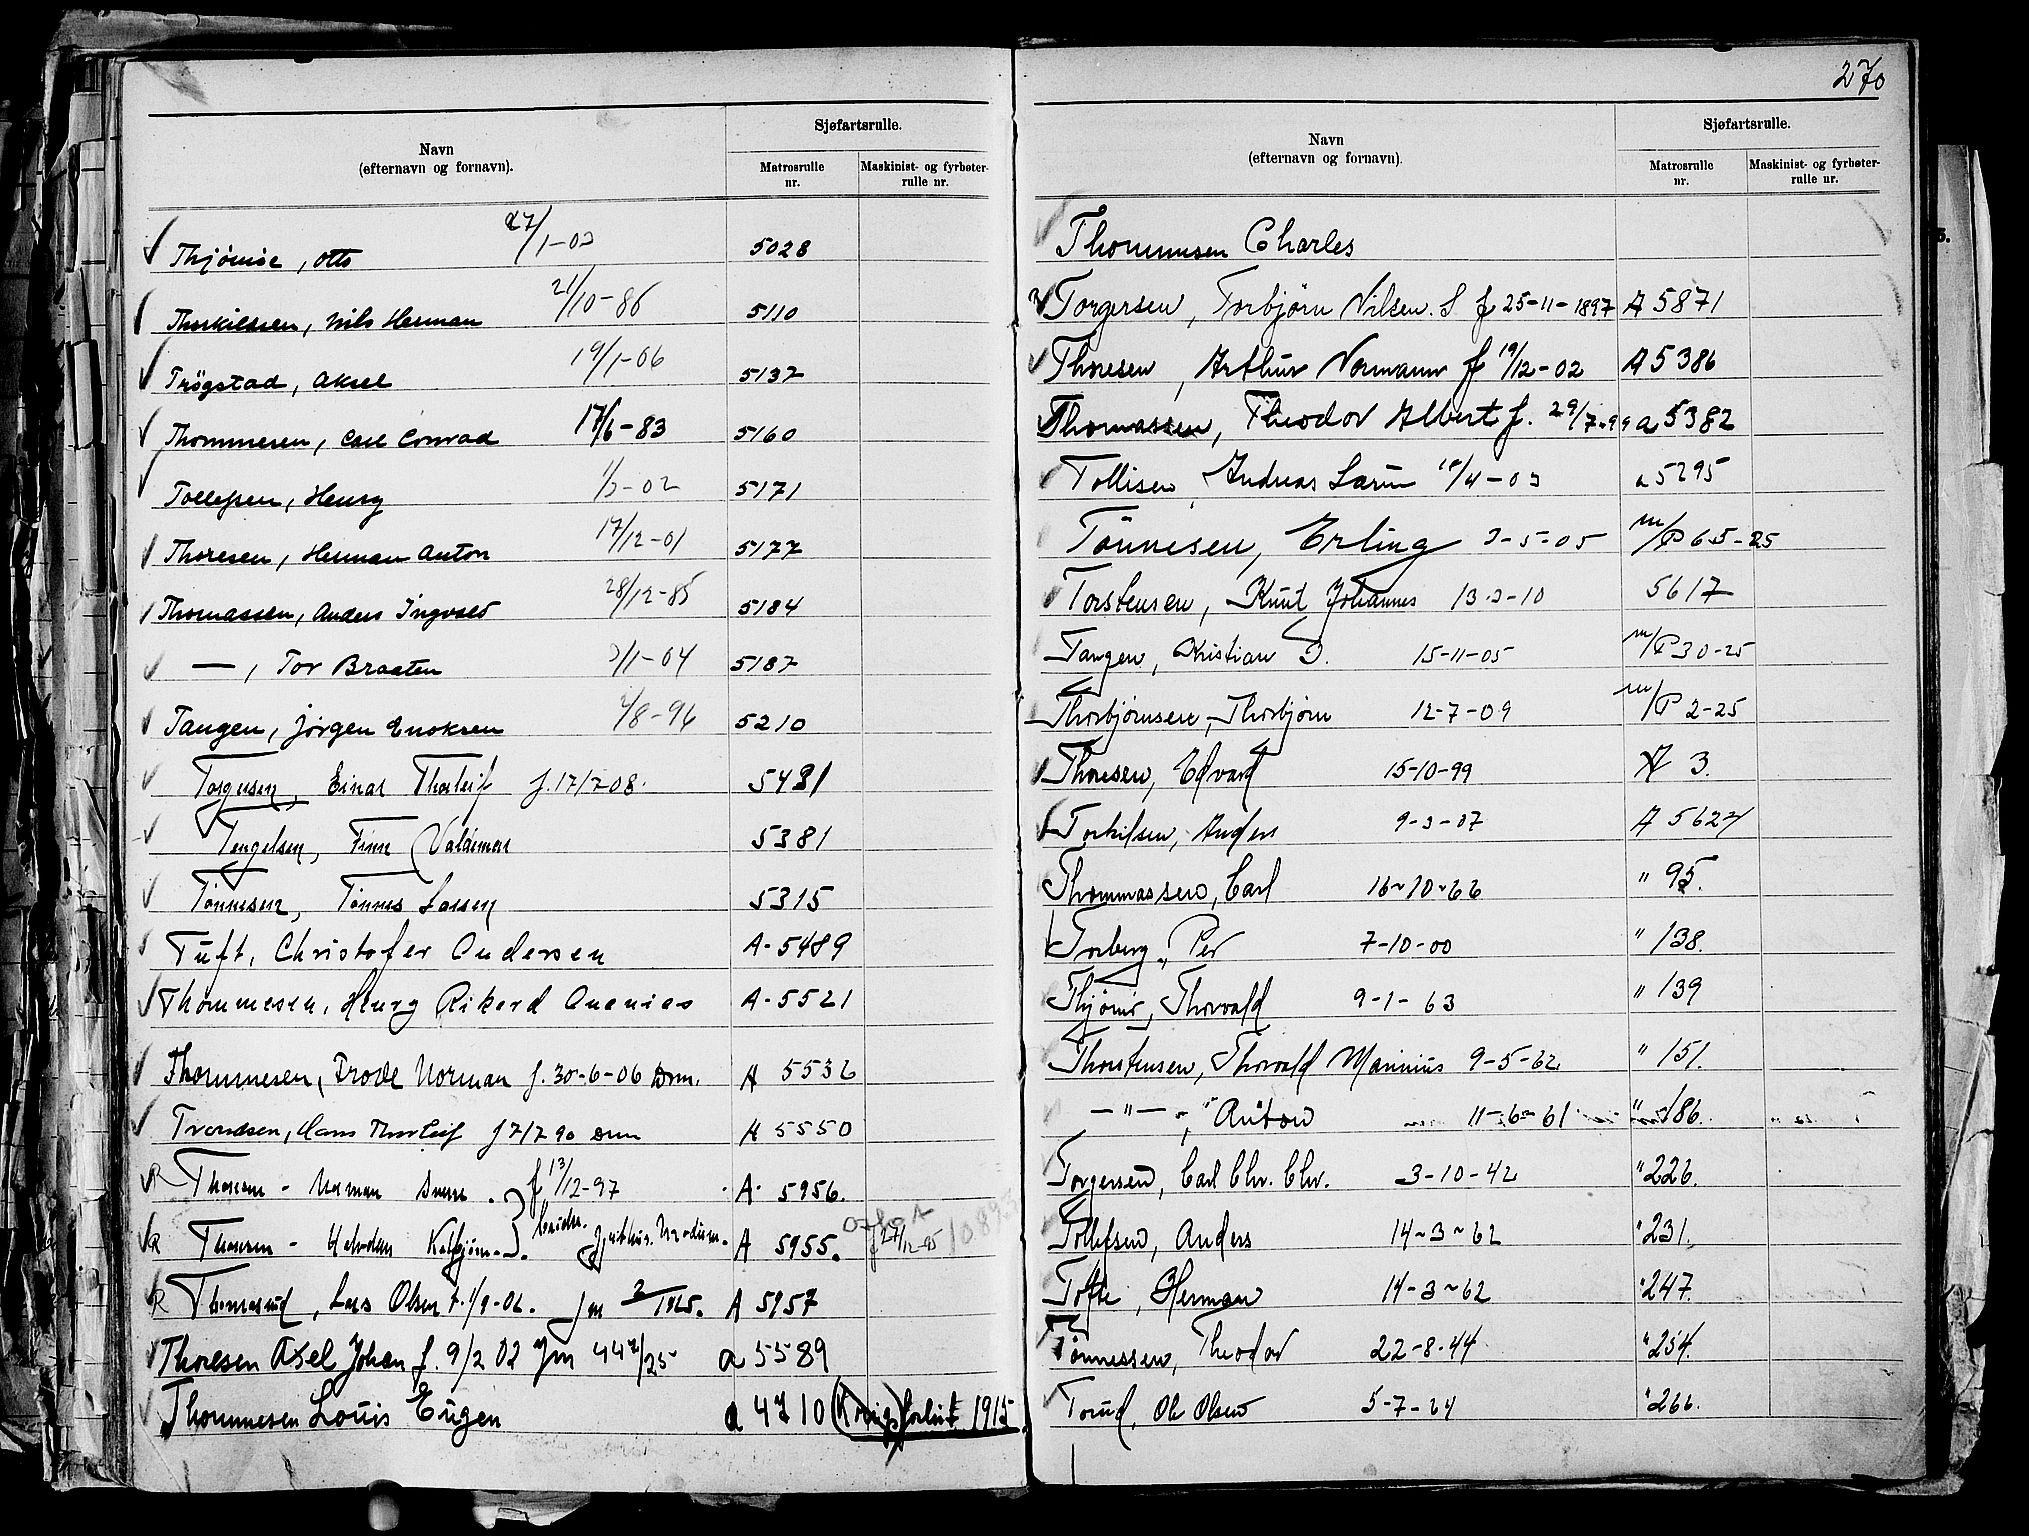 Navn
(efternavn og fornavn).
Sjøfartsrulle.
Matrosrulle nr.
Maskinist- og fyrbøter-rulle nr.
Thjømøe, Otto 27/1-03 5028
Thorkilsen, Nils Herman 21/10-86 5110
Trögstad, Aksel 19/1-06 5137
Thommesen, Carl Conrad 17/6-83 5160
Tollefsen, Henry 1/3-02 5171
Thoresen, Herman Anton 17/12-01 5177
Thomassen, Anders Ingvald 28/12-85 5184
— , Tor Braaten 3/1-04 5187
Tangen, Jørgen Enoksen /8-96 5210
Torgersen, Einar Thorleif f. 17/7 08. 5431
Tengelsen, Finn Valdemar 5381
Tønnesen, Tønnes Larsen 5315
Tuft, Christofer Andersen A-5489
Thommesen, Henry Rikard Ananias A-5521
Thommesen, Frode Norman f. 30-6-06 Drm. A 5532
Trondsen, Hans Thorleif f 7/7 90 Drm A 5550
R Thoresen - Herman f 13/12-97 A. 5956.
R Thoresen - Halvdan A 5955. 27/12-95
R Thomasrud, Lars Olsen f. 1/9-06. Jm 2/1925. A 5957
Thoresen Axel Johan f. 9/2 02 Jm 44 2/25 a 5589
Thommesen Louis Eugen a 4710 (Krigs)forlist 1915
270
Navn
(efternavn og fornavn).
Sjøfartsrulle.
Matrosrulle nr.
Maskinist- og fyrbøter-rulle nr.
Thommesen Charles
Torgersen, Torbjørn Nilsen. S f 25-11-1897 A 5871
Thoresen, Arthur Normann f 19/12-02 A 5386
Thomassen, Theodor Albert f. 29/7-99 a 5382
Tollisen, Andreas /4-03 a 5295
Tönnesen, Erling 3-5-05 m/P 65-25
Torstensen, Knut Johannes 13-3-10 5617
Tangen, Kristian D. 15-11-05 m/P 30-25
Thorbjørnsen, Thorbjørn 12-7-09 m/P 2-25
Thoresen, Edvard 15-10-99 A 3.
Torkilsen, Anders 9-3-07 A 5627
Thommassen, Carl 16-10-66 " 95.
Torberg, Per 7-10-00 " 138.
Thjømø, Thorvald 9-1-63 " 139
Thorstensen, Thorvald Marinius 9-5-62 " 151.
— " — , Anton 11-6-61 " 186.
Torgersen, Carl Chr. Chr. 3-10-42 " 226.
Tollefsen, Anders 14-3-62 " 231.
Tofte, Herman 14-3-62 " 247.
Tønnessen, Theodor 22-8-44 " 254.
Torud, Ole Olsen 5-7-64 " 266.